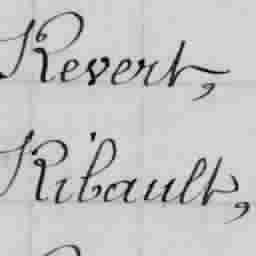 Revert,
Ribault,